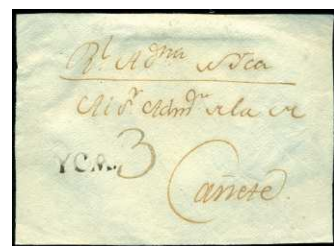 Rl Admn
Al Sr Admor de la de
YCA. 3
Cañete